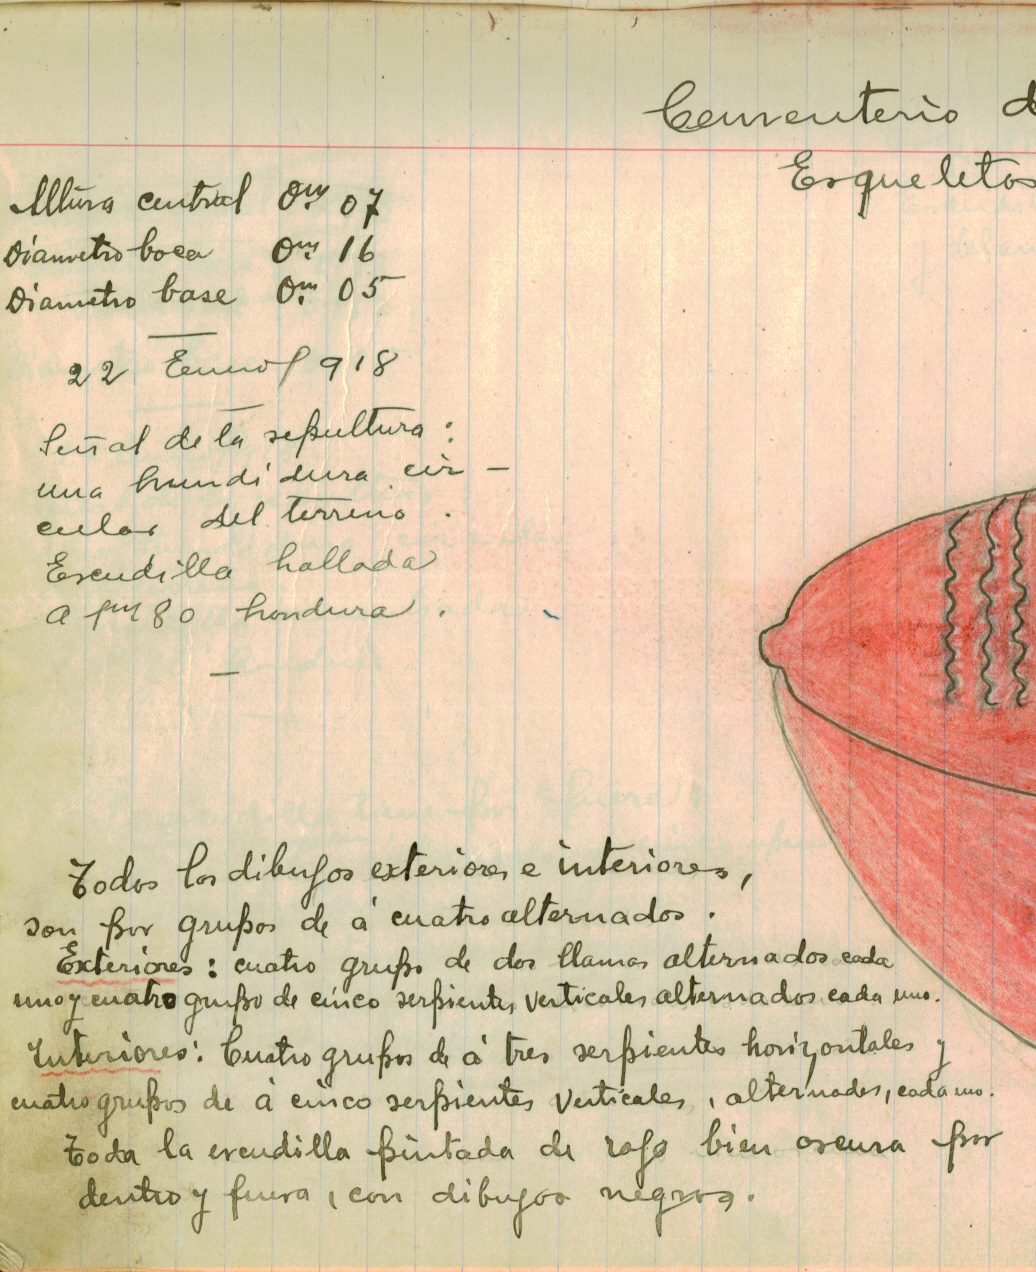 Cementerio d
Esqueletos
Altura central 0m. 07
Diametro boca 0m. 16
Diametro base 0m. 05
22 Enero/918
Señal de la sepultura:
una hundidura cir-
cular del terreno.
Escudilla hallada
a 1m80 hondura.
Todos los dibujos exteriores e interiores,
son por grupos de á cuatro alternados.
Exteriores: cuatro grupos de dos llamas alternados cada
uno y cuatro grupo de cinco serpientes verticales alternados cada uno.
Interiores: Cuatro grupos de á tres serpientes horizontales y
cuatro grupos de á cinco serpientes verticales, alternados, cada uno.
Toda la escudilla pintada de rojo bien oscura por
dentro y fuera, con dibujos negros.